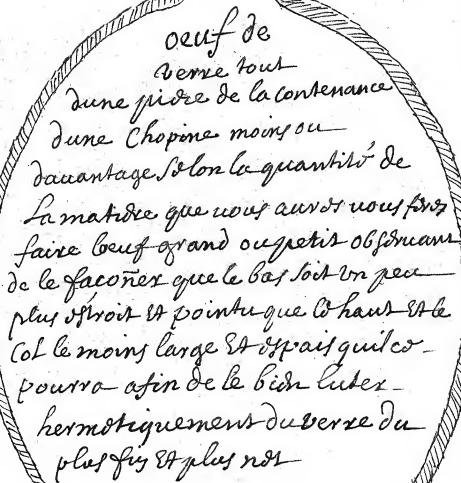 oeuf de
verre tout
dune piece de la contenance
dune Chopine moins ou
dauantage selon la quantité de
La matiere que uous aurés uous ferés
faire loeuf grand ou petit obseruant
de le façoñer que le bas soit un peu
plus estroit Et pointu que le haut Et le
Col le moins large Et espais quil se
pourra afin de le bien luter
hermetiquement du verre du
plus fin Et plus net